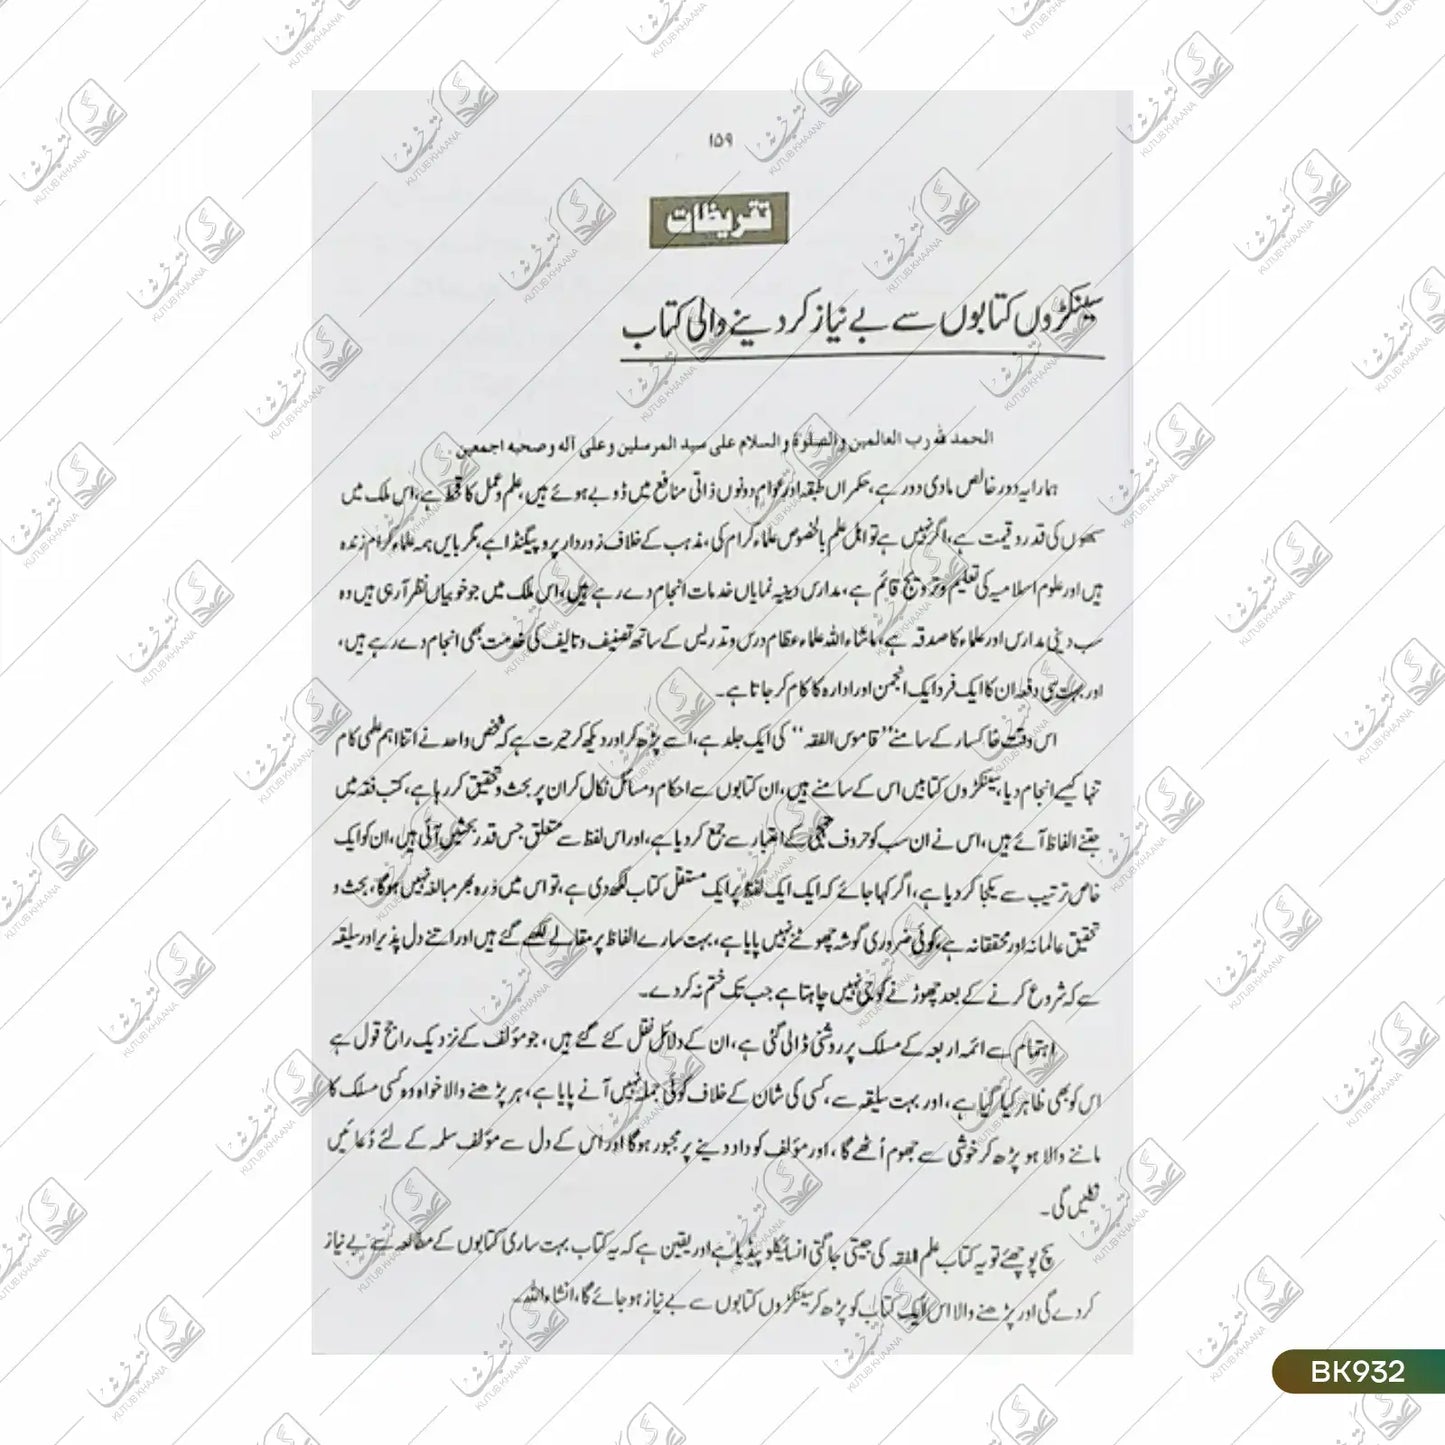 ۱۵۹
تقریظات
سینکڑوں کتابوں سے بے نیاز کر دینے والی کتاب
الحمد للہ رب العالمین والصلوٰۃ والسلام علی سید المرسلین وعلی آلہ وصحبہ اجمعین
ہمارا یہ دور خالص مادی دور ہے، حکمراں طبقہ اور عوام دونوں ذاتی منافع میں ڈوبے ہوئے ہیں، علم و عمل کا قحط ہے، اس ملک میں
سبھوں کی قدر و قیمت ہے، اگر نہیں ہے تو اہل علم بالخصوص علماء کرام کی، مذہب کے خلاف زور دار پروپیگنڈا ہے، مگر بایں ہمہ علماء کرام زندہ
ہیں اور علوم اسلامیہ کی تعلیم و ترویج قائم ہے، مدارس دینیہ نمایاں خدمات انجام دے رہے ہیں، اس ملک میں جو خوبیاں نظر آ رہی ہیں وہ
سب دینی مدارس اور علماء کا صدقہ ہے، ماشاء اللہ علماء عظام درس و تدریس کے ساتھ تصنیف و تالیف کی خدمت بھی انجام دے رہے ہیں،
اور بہت سی دفعہ ان کا ایک فرد ایک انجمن اور ادارہ کا کام کر جاتا ہے۔
اس وقت خاکسار کے سامنے "قاموس الفقہ" کی ایک جلد ہے، اسے پڑھ کر اور دیکھ کر حیرت ہے کہ شخص واحد نے اتنا اہم علمی کام
تنہا کیسے انجام دیا، سینکڑوں کتابیں اس کے سامنے ہیں، ان کتابوں سے احکام و مسائل نکال کر ان پر بحث و تحقیق کر رہا ہے، کتب فقہ میں
جتنے الفاظ آئے ہیں، اس نے ان سب کو حروف تہجی کے اعتبار سے جمع کر دیا ہے، اور اس لفظ سے متعلق جس قدر بحثیں آئی ہیں، ان کو ایک
خاص ترتیب سے یکجا کر دیا ہے، اگر کہا جائے کہ ایک ایک لفظ پر ایک مستقل کتاب لکھ دی ہے، تو اس میں ذرہ بھر مبالغہ نہیں ہوگا، بحث و
تحقیق عالمانہ اور محققانہ ہے، کوئی ضروری گوشہ چھوٹنے نہیں پایا ہے، بہت سارے الفاظ پر مقالے لکھے گئے ہیں اور اتنے دل پذیر اور سلیقہ
سے کہ شروع کرنے کے بعد چھوڑنے کو جی نہیں چاہتا ہے جب تک ختم نہ کر دے۔
اہتمام سے ائمہ اربعہ کے مسلک پر روشنی ڈالی گئی ہے، ان کے دلائل نقل کئے گئے ہیں، جو مؤلف کے نزدیک راجح قول ہے
اس کو بھی ظاہر کیا گیا ہے، اور بہت سلیقہ سے، کسی کی شان کے خلاف کوئی جملہ نہیں آنے پایا ہے، ہر پڑھنے والا خواہ وہ کسی مسلک کا
ماننے والا ہو پڑھ کر خوشی سے جھوم اُٹھے گا، اور مؤلف کو داد دینے پر مجبور ہوگا اور اس کے دل سے مؤلف سلمہ کے لئے دُعائیں
نکلیں گی۔
سچ پوچھئے تو یہ کتاب علم الفقہ کی جیتی جاگتی انسائیکلوپیڈیا ہے اور یقین ہے کہ یہ کتاب بہت ساری کتابوں کے مطالعہ سے بے نیاز
کر دے گی اور پڑھنے والا اس ایک کتاب کو پڑھ کر سینکڑوں کتابوں سے بے نیاز ہو جائے گا، انشاء اللہ۔
BK932
کتب خانہ
KUTUB KHAANA